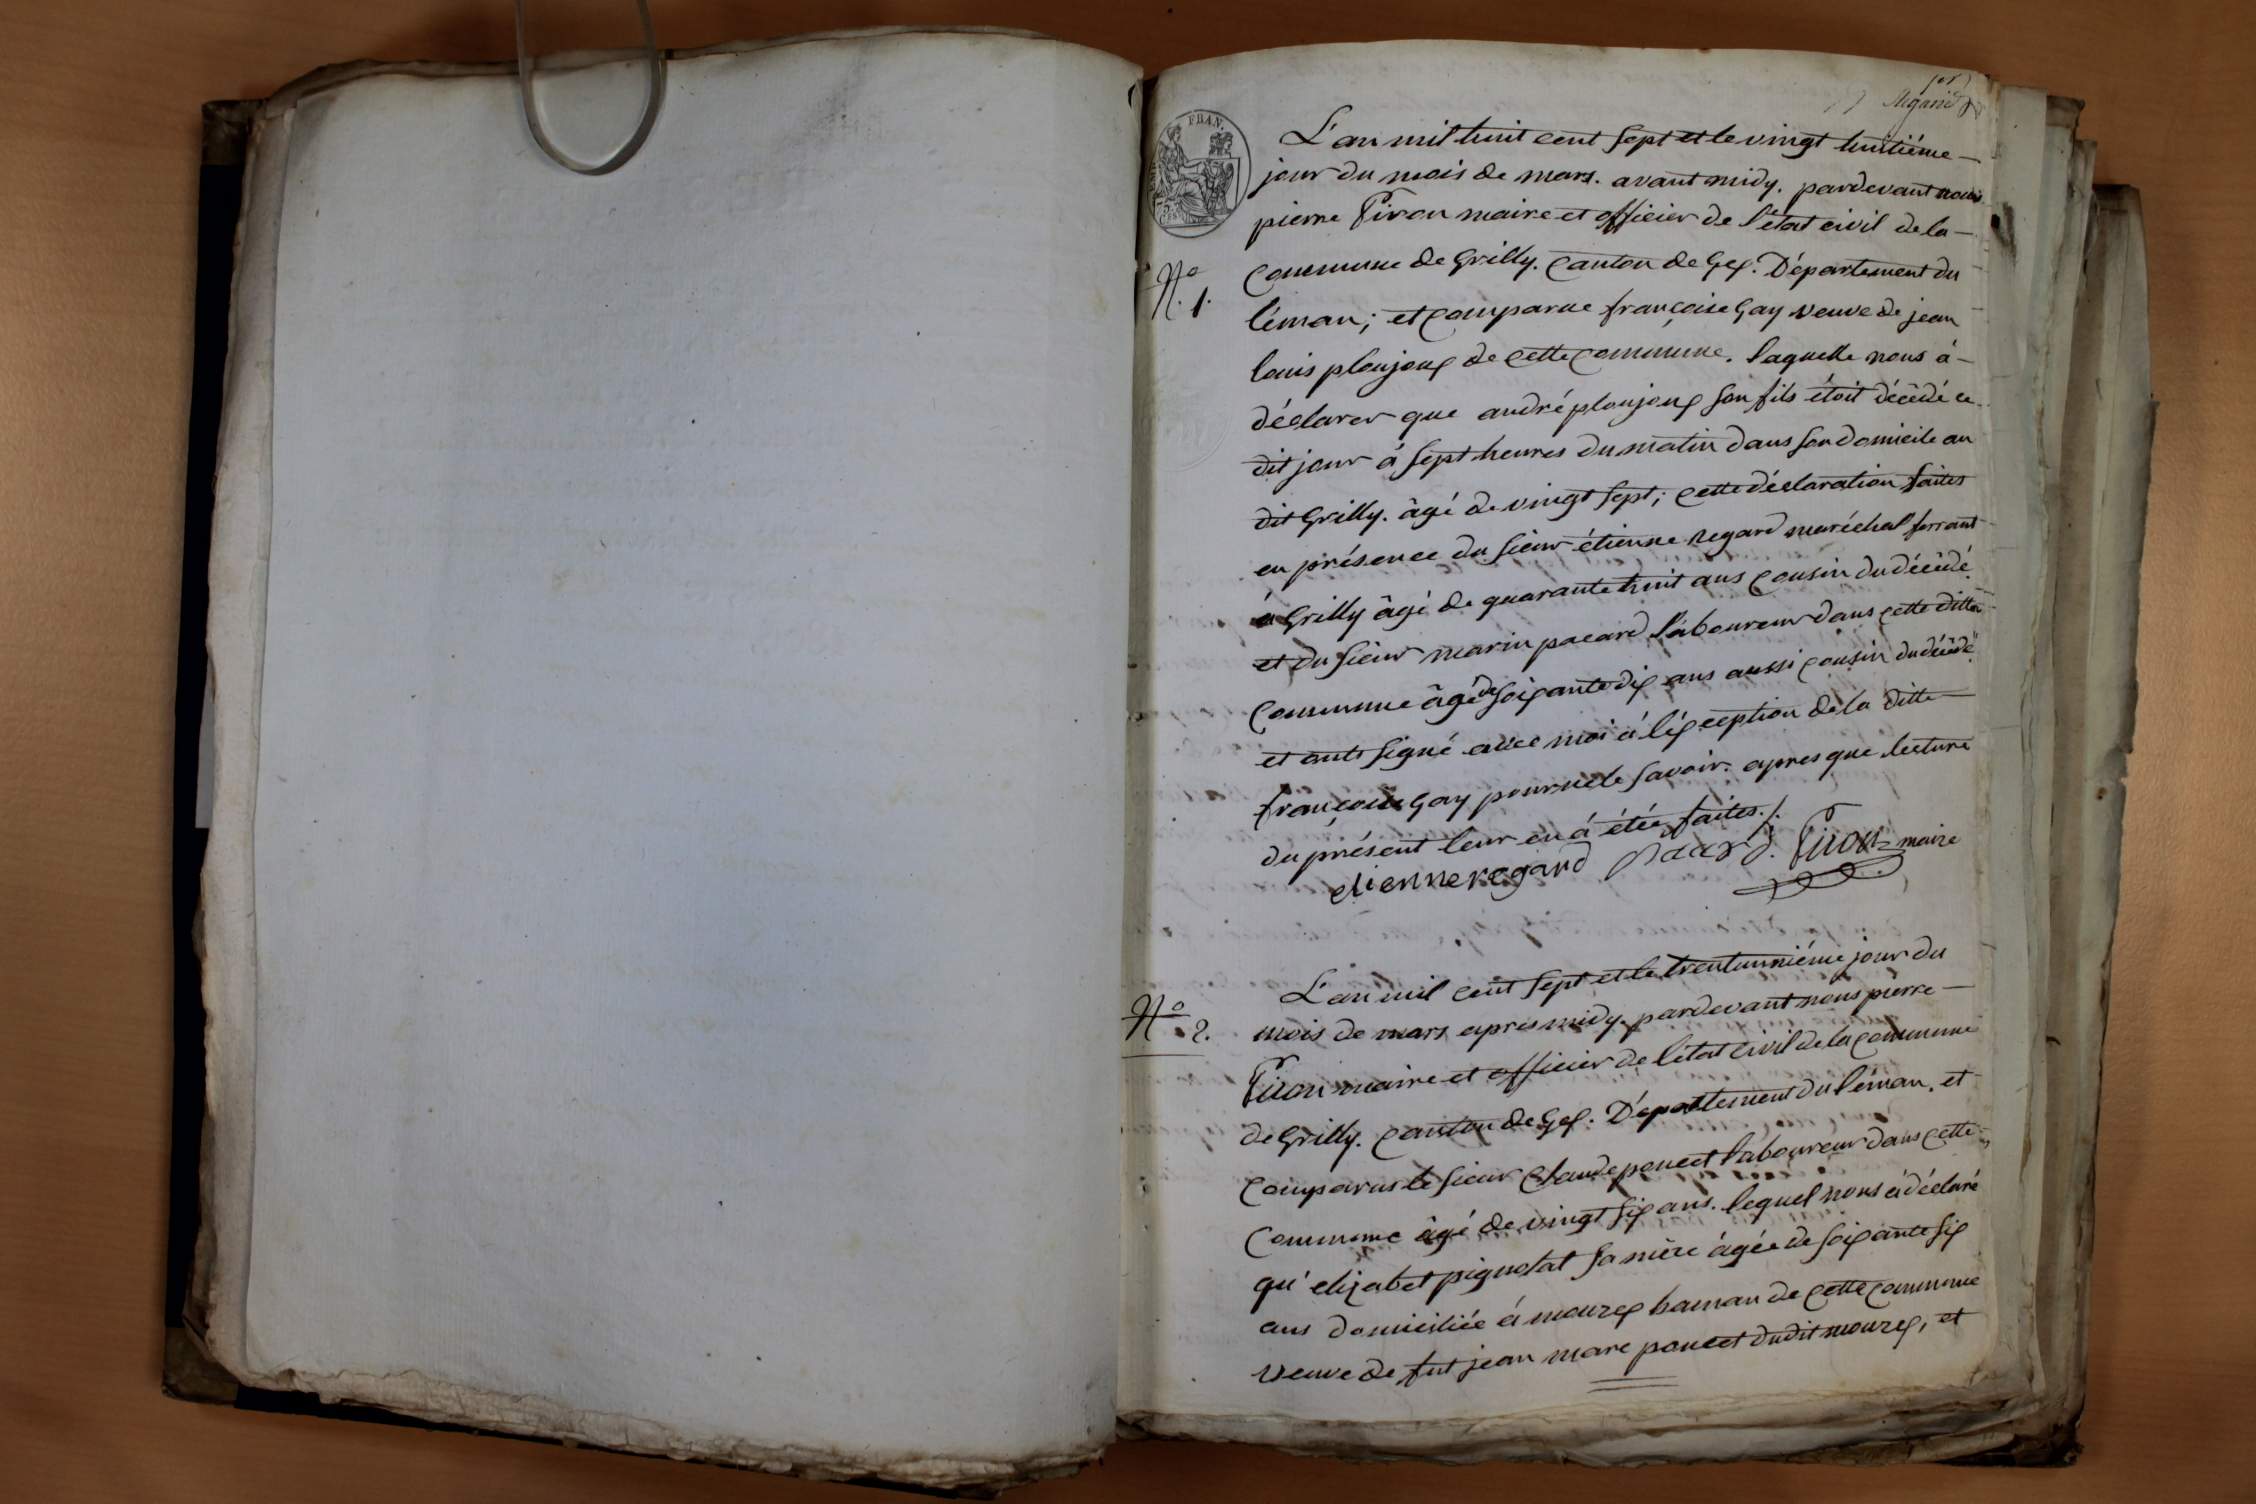 1er
FRAN.
L'an mil huit cent sept et le vingt huitiéme
jour du mois de mars. avant midy. pardevant nous
pierre Piron maire et officier de l'état civil de la
N.o 1.
commune de Grilly. canton de Gex. Département du
léman; et comparue françoise Gay veuve de jean
louis ploujoux de cette commune. laquelle nous à
déclarer que andré ploujoux son fils étoit décédé ce
dit jour à sept heures du matin dans son domicile au
dit Grilly. âgé de vingt sept; cette déclaration faites
en présence du sieur étienne regard maréchal ferrant
à Grilly âgé de quarante huit ans cousin du décédé
et du sieur marin pacard laboureur dans cette ditte
commune âgé de soixante dix ans aussi cousin du décédé
et onts signé avec moi à l'éxception de la ditte
françoise Gay pour ne le savoir. apres que lecture
du présent leur en à étée faites./.
etienne regard pacard. Piron maire
N.o 2.
L'an mil cent sept et le trentunniéme jour du
mois de mars apres midy. pardevant nous pierre
Piron maire et officier de l'état civil de la commune
de Grilly. canton de Gex. Département du léman. et
comparus le sieur Claude poncet laboureur dans cette
commune âgé de vingt six ans. lequel nous à déclaré
qu'elizabet pignolat sa mère âgée de soixante six
ans domiciliée à mourex hamau de cette commune
veuve de fut jean marc poncet dudit mourex, et